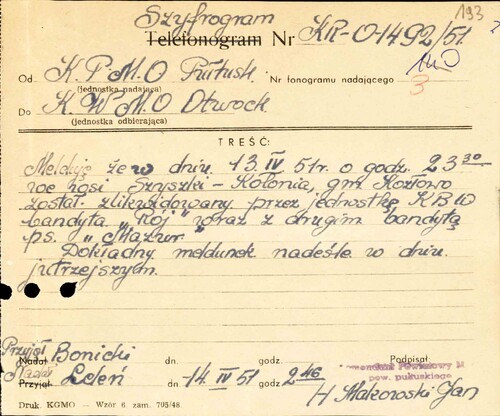 193
Szyfrogram
Telefonogram Nr KR-0-1492/51.
Od K.P.M.O Pułtusk Nr fonogramu nadającego
(jednostka nadająca)
3
Do K.W.M.O Otwock
(jednostka odbierająca)
TREŚĆ:
Melduję że w dniu 13 IV 51 r o godz. 23 30
we wsi Szyszki - Kolonia, gm Kozłowo
został zlikwidowany przez jednostkę KBW
bandyta "Rój" wraz z drugim bandytą
ps. "Mazur"
Dokładny meldunek nadeślę w dniu
jutrzejszym.
Przyjął Bonicki
Nadał dn. godz. Podpisał:
Nadał Ledeń 14 IV 51 2 46
Przyjął: dn. godz.
Komendant Powiatowy M
pow. pułtuskiego
H Makowski Jan
Druk. KGMO — Wzór 6. zam. 705/48.